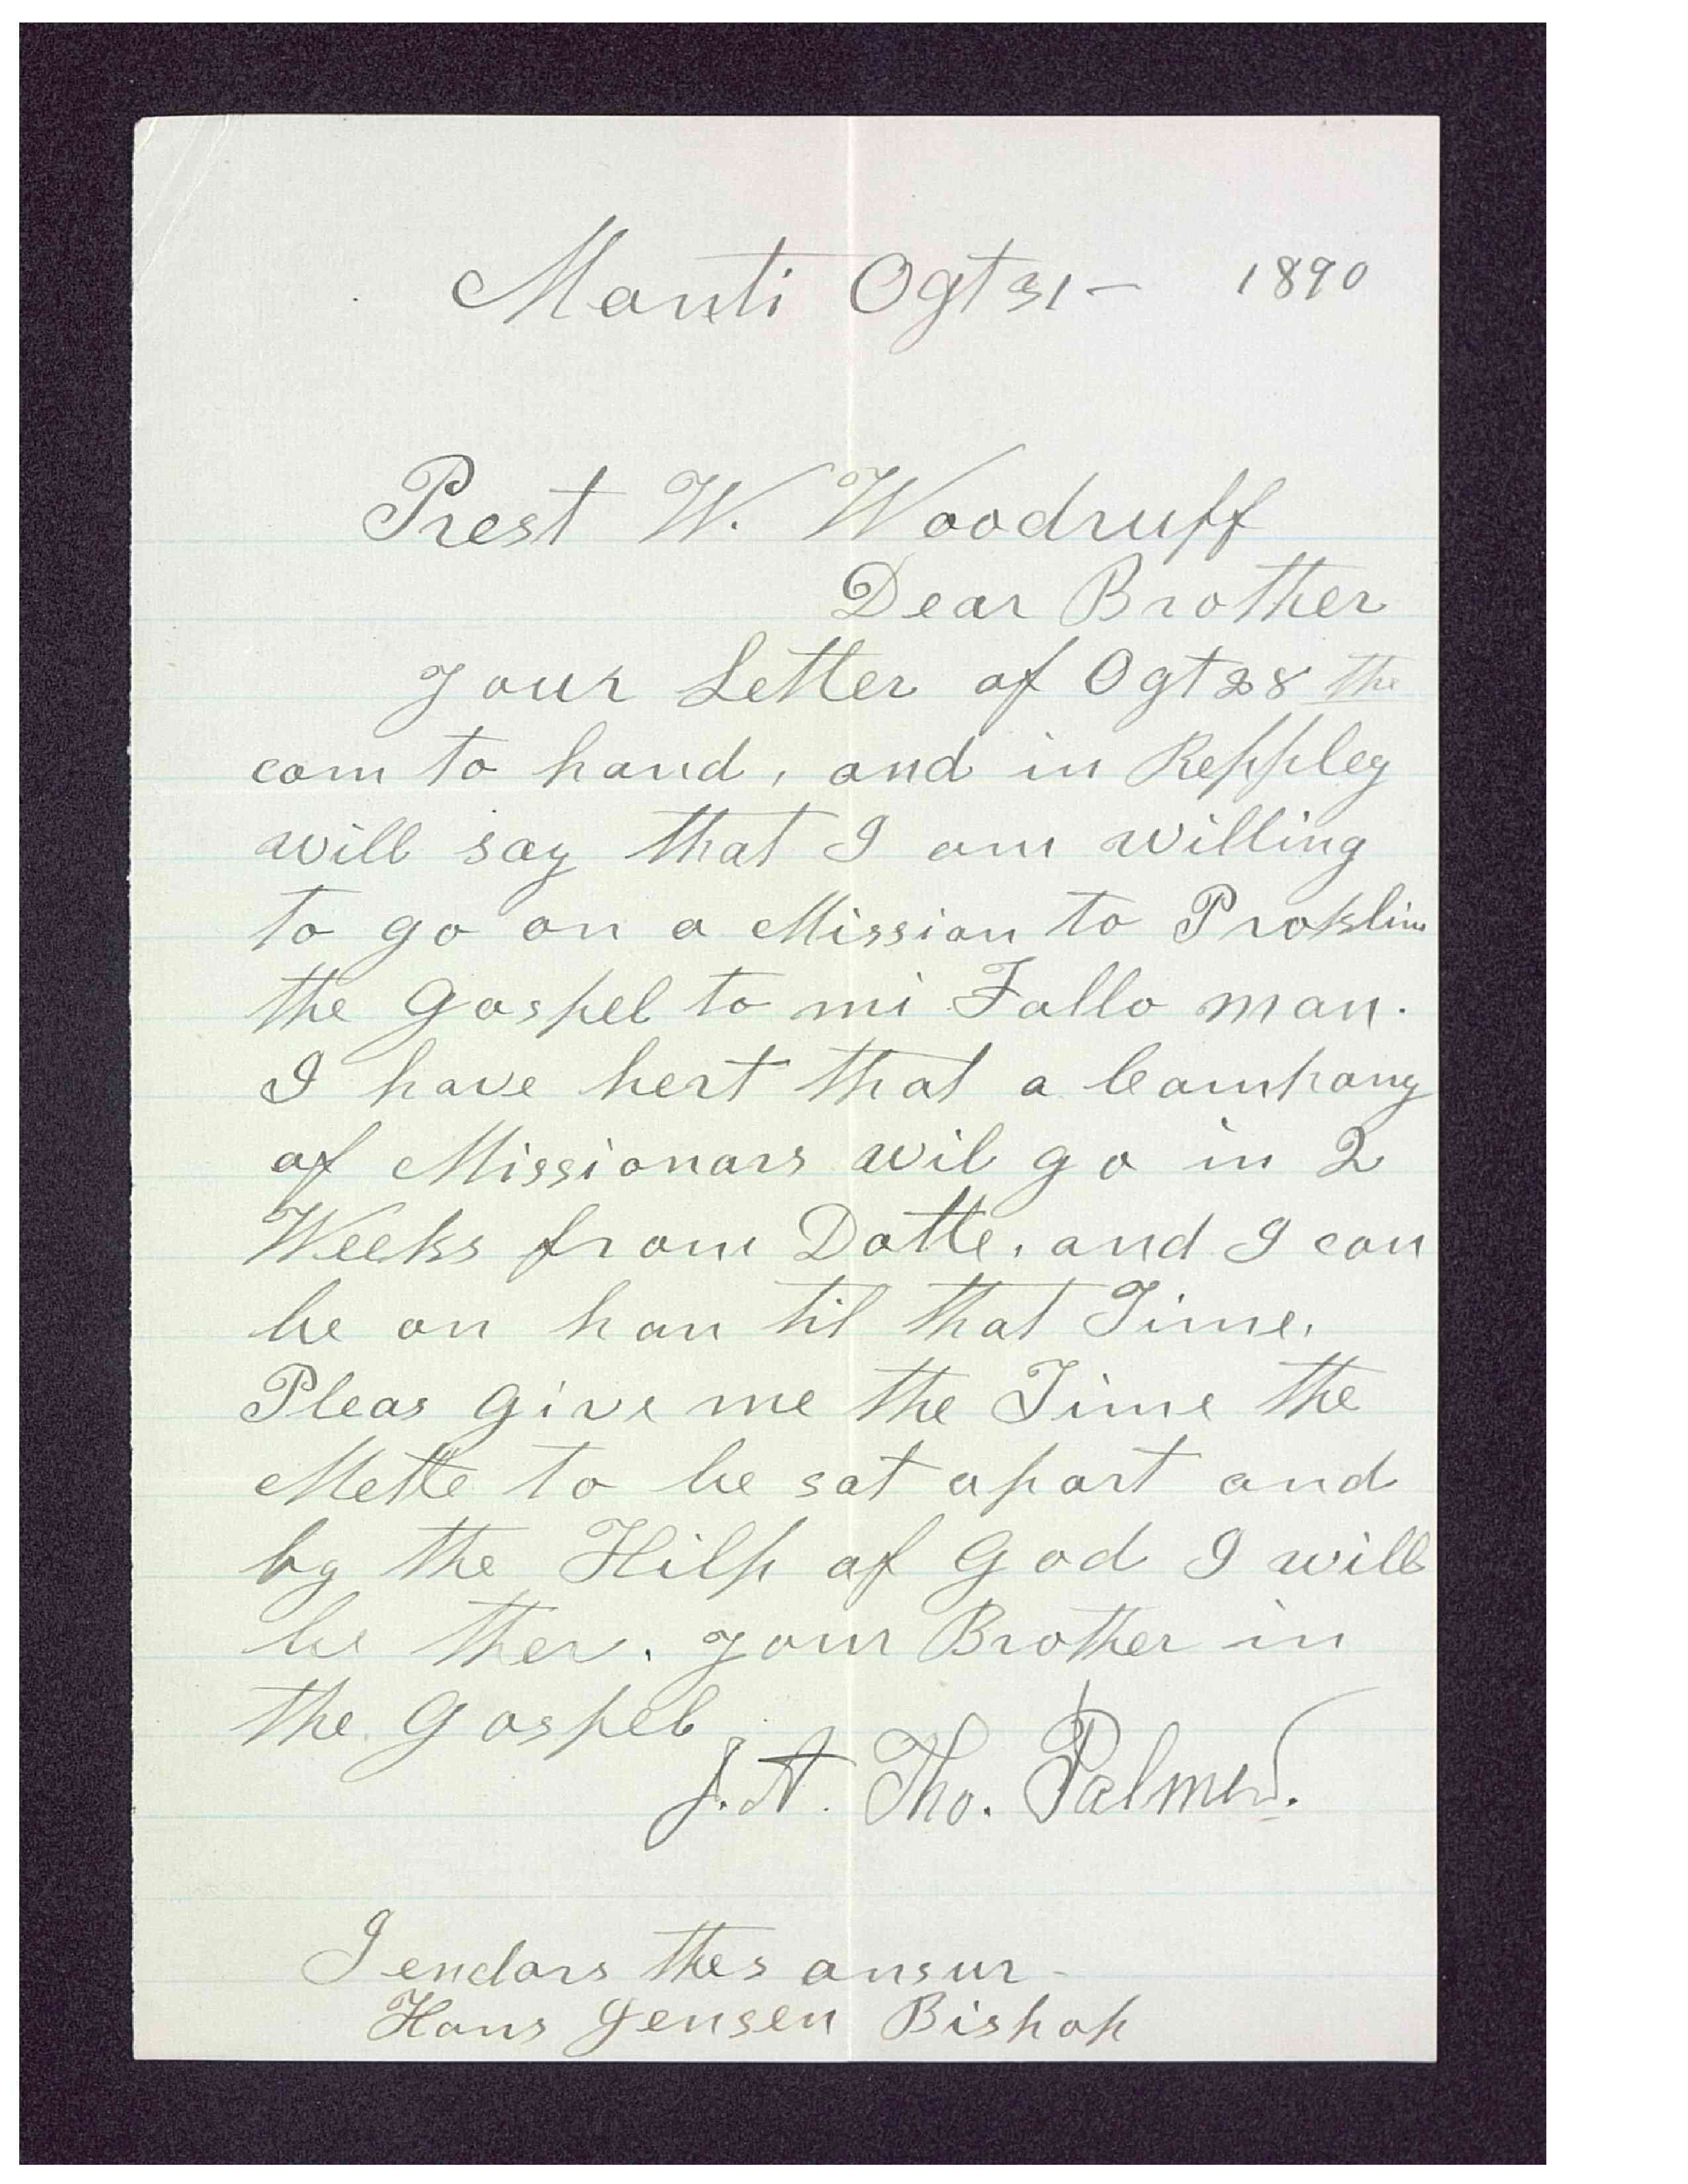 Manti Ogt 31 – 1890
Prest W. Woodruff
Dear Brother
your Letter of Ogt 28 the
com to hand, and in Reppley
will say that I am willing
to go on a Mission to Proklim
the Gospel to mi Fallo man.
I have hert that a Company
of Missionars wil go in 2
Weeks from Datte, and I can
be on han til that Time.
Pleas give me the Time the
Mette to be sat apart and
by the Hilp of God I will
be ther. your Brother in
the Gospel
J. A. Tho. Palmer.
I endors thes ansur-
Hans Jensen Bishop